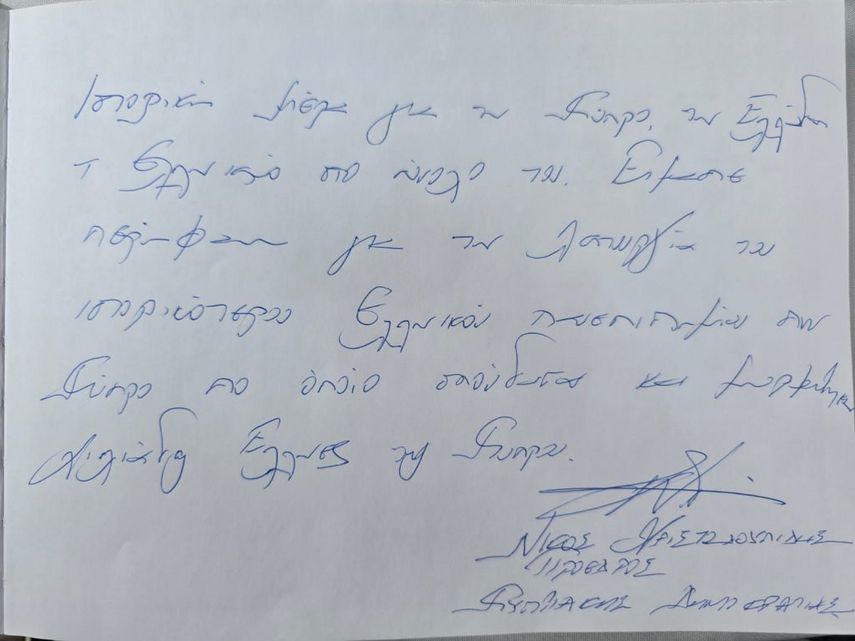 Ιστορική μέρα για την Κύπρο, την Ελλάδα
τ Ελληνισμό στο σύνολο του. Είμαστε
περήφανοι για την λειτουργία του
ιστορικότερου Ελληνικού πανεπιστημίου στην
Κύπρο στο οποίο σπούδασαν και μορφώθηκαν
χιλιάδες Έλληνες της Κύπρου.
ΝΙΚΟΣ ΧΡΙΣΤΟΔΟΥΛΙΔΗΣ
ΠΡΟΕΔΡΟΣ
ΚΥΠΡΙΑΚΗΣ ΔΗΜΟΚΡΑΤΙΑΣ